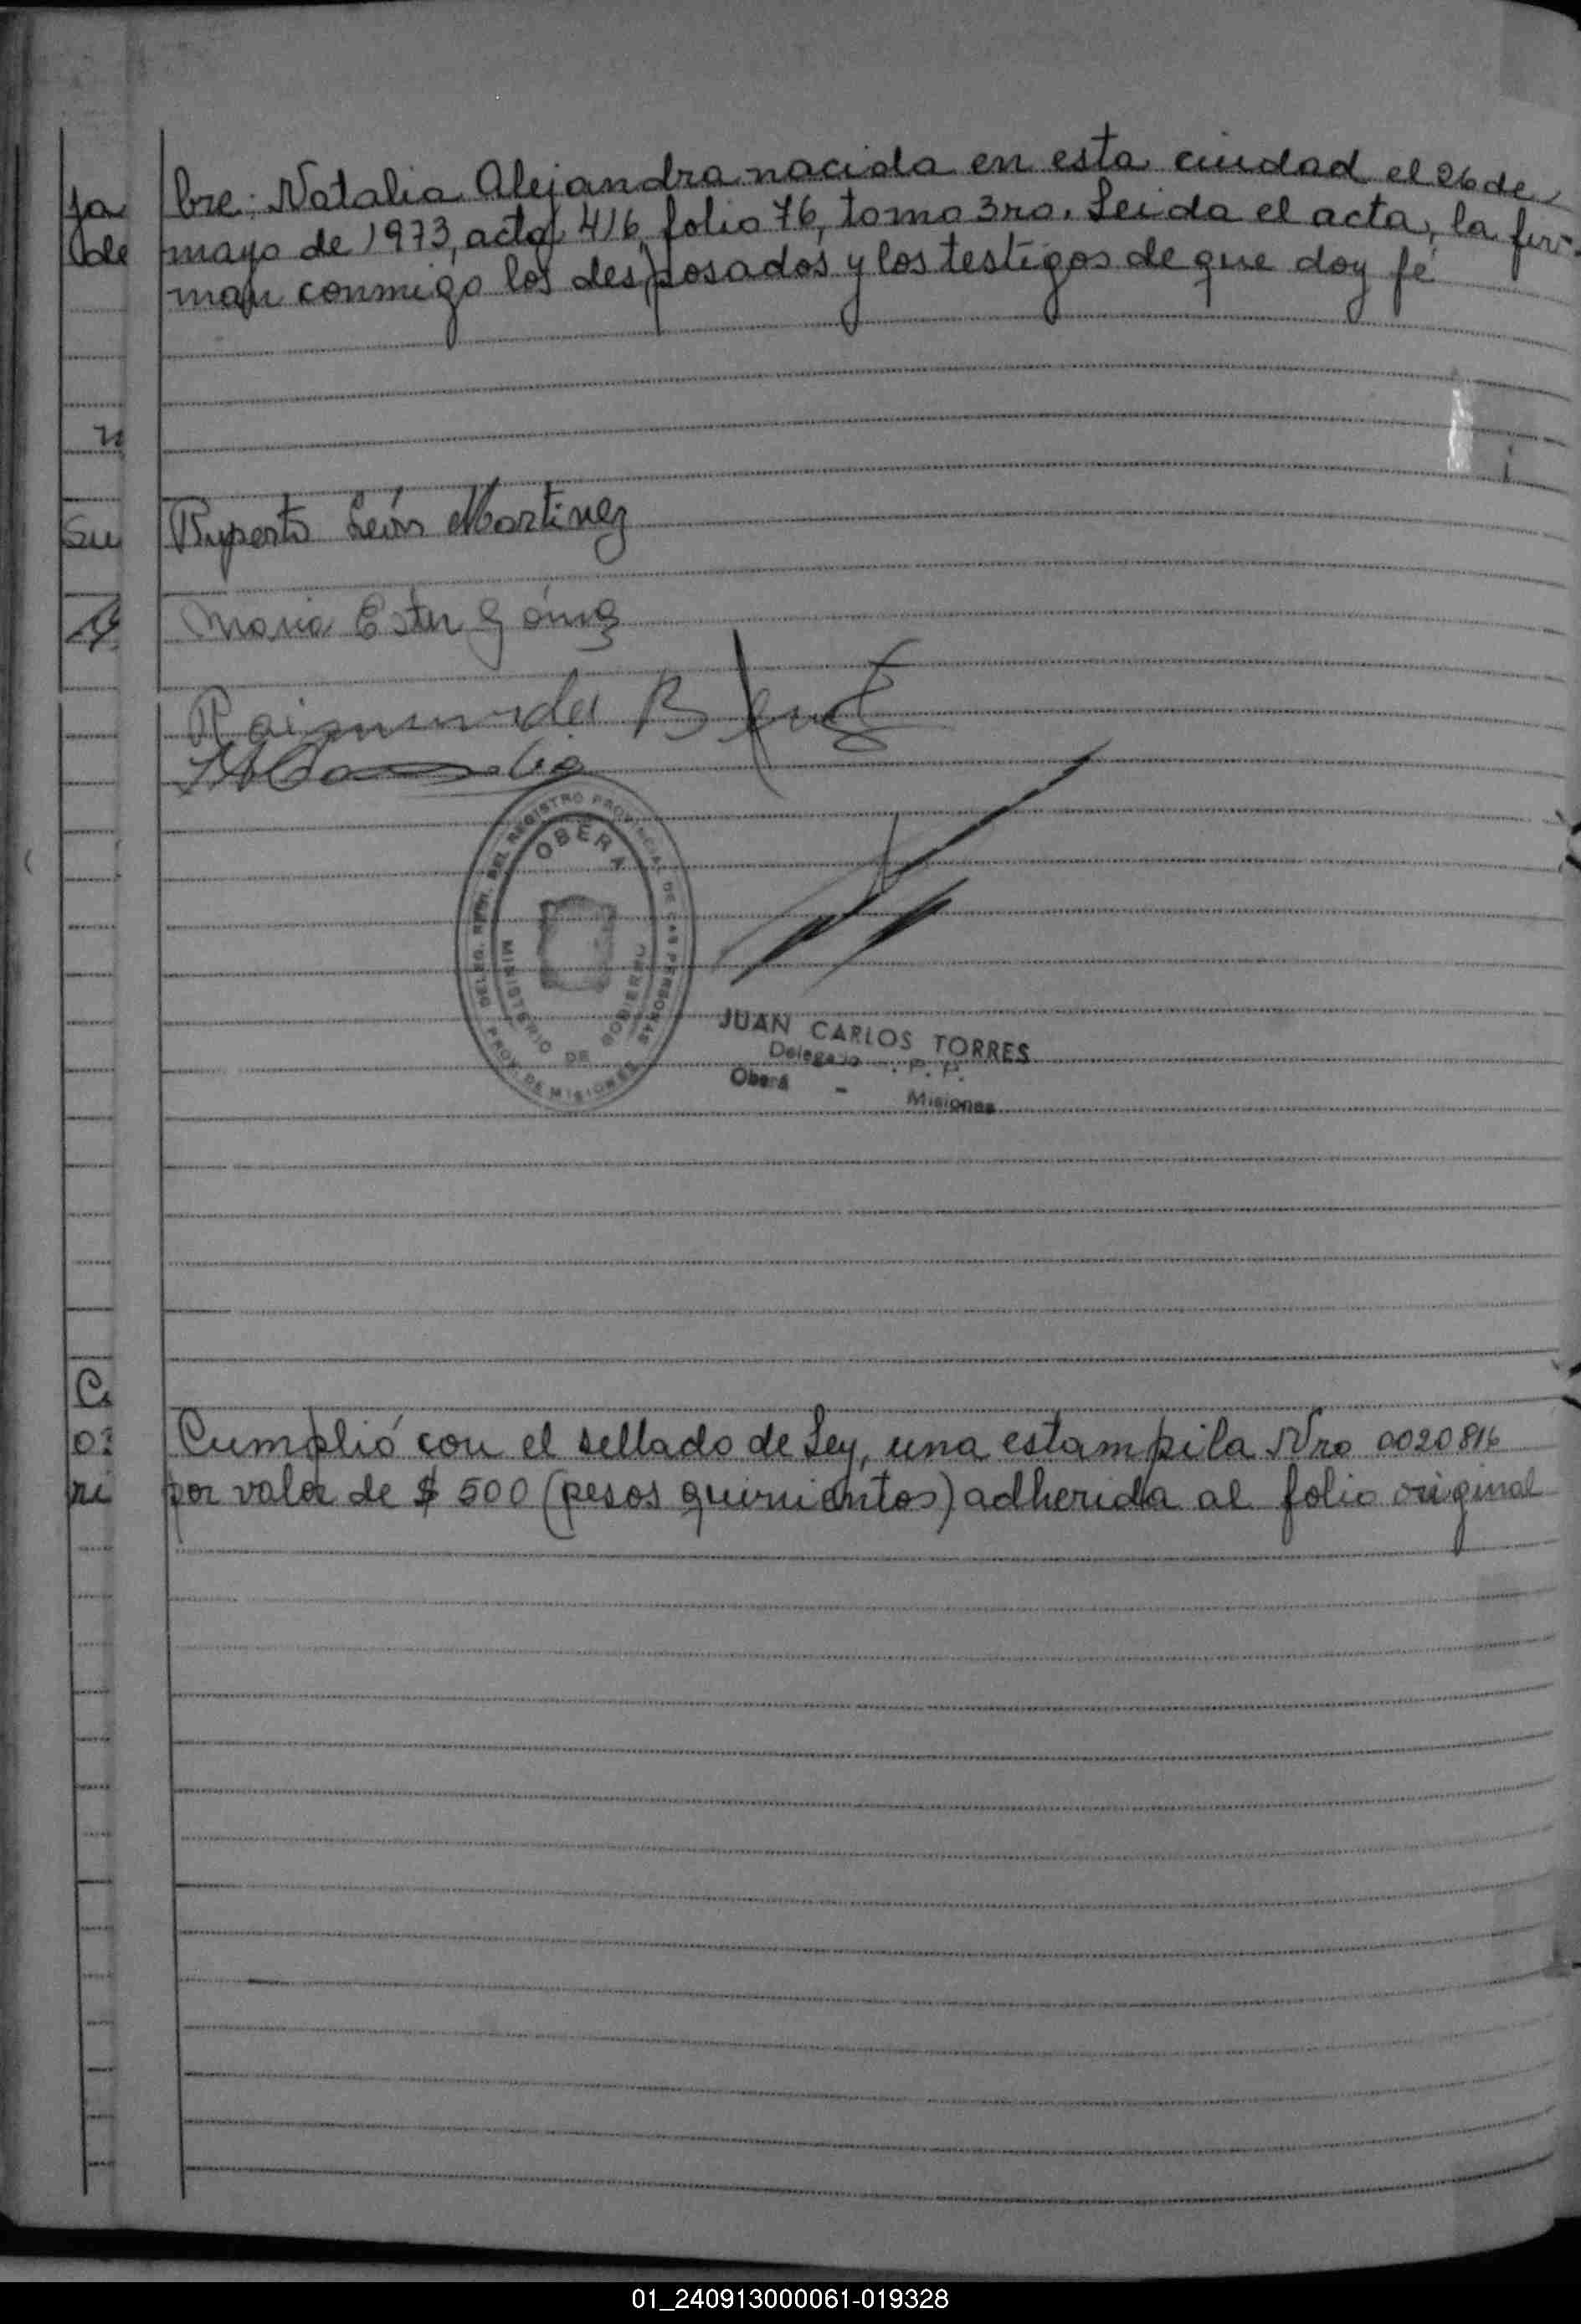 ja
de
n
su
C
ri
bre: Natalia Alejandra nacida en esta ciudad el 26 de
mayo de 1973, acta 416, folio 76, tomo 3ro. Leida el acta, la fir-
man conmigo los desposados y los testigos de que doy fé
Ruperto León Martinez
Maria Ester Gómez
Raimunda B
OBERÁ
DEL REGISTRO PROVINCIAL DE LAS PERSONAS
MINISTERIO DE GOBIERNO
PROV. DE MISIONES
JUAN CARLOS TORRES
Delegado
Oberá - Misiones
Cumplió con el sellado de Ley, una estampila Nro 0020816
por valor de $ 500 (pesos quinientos) adherida al folio original
01_240913000061-019328